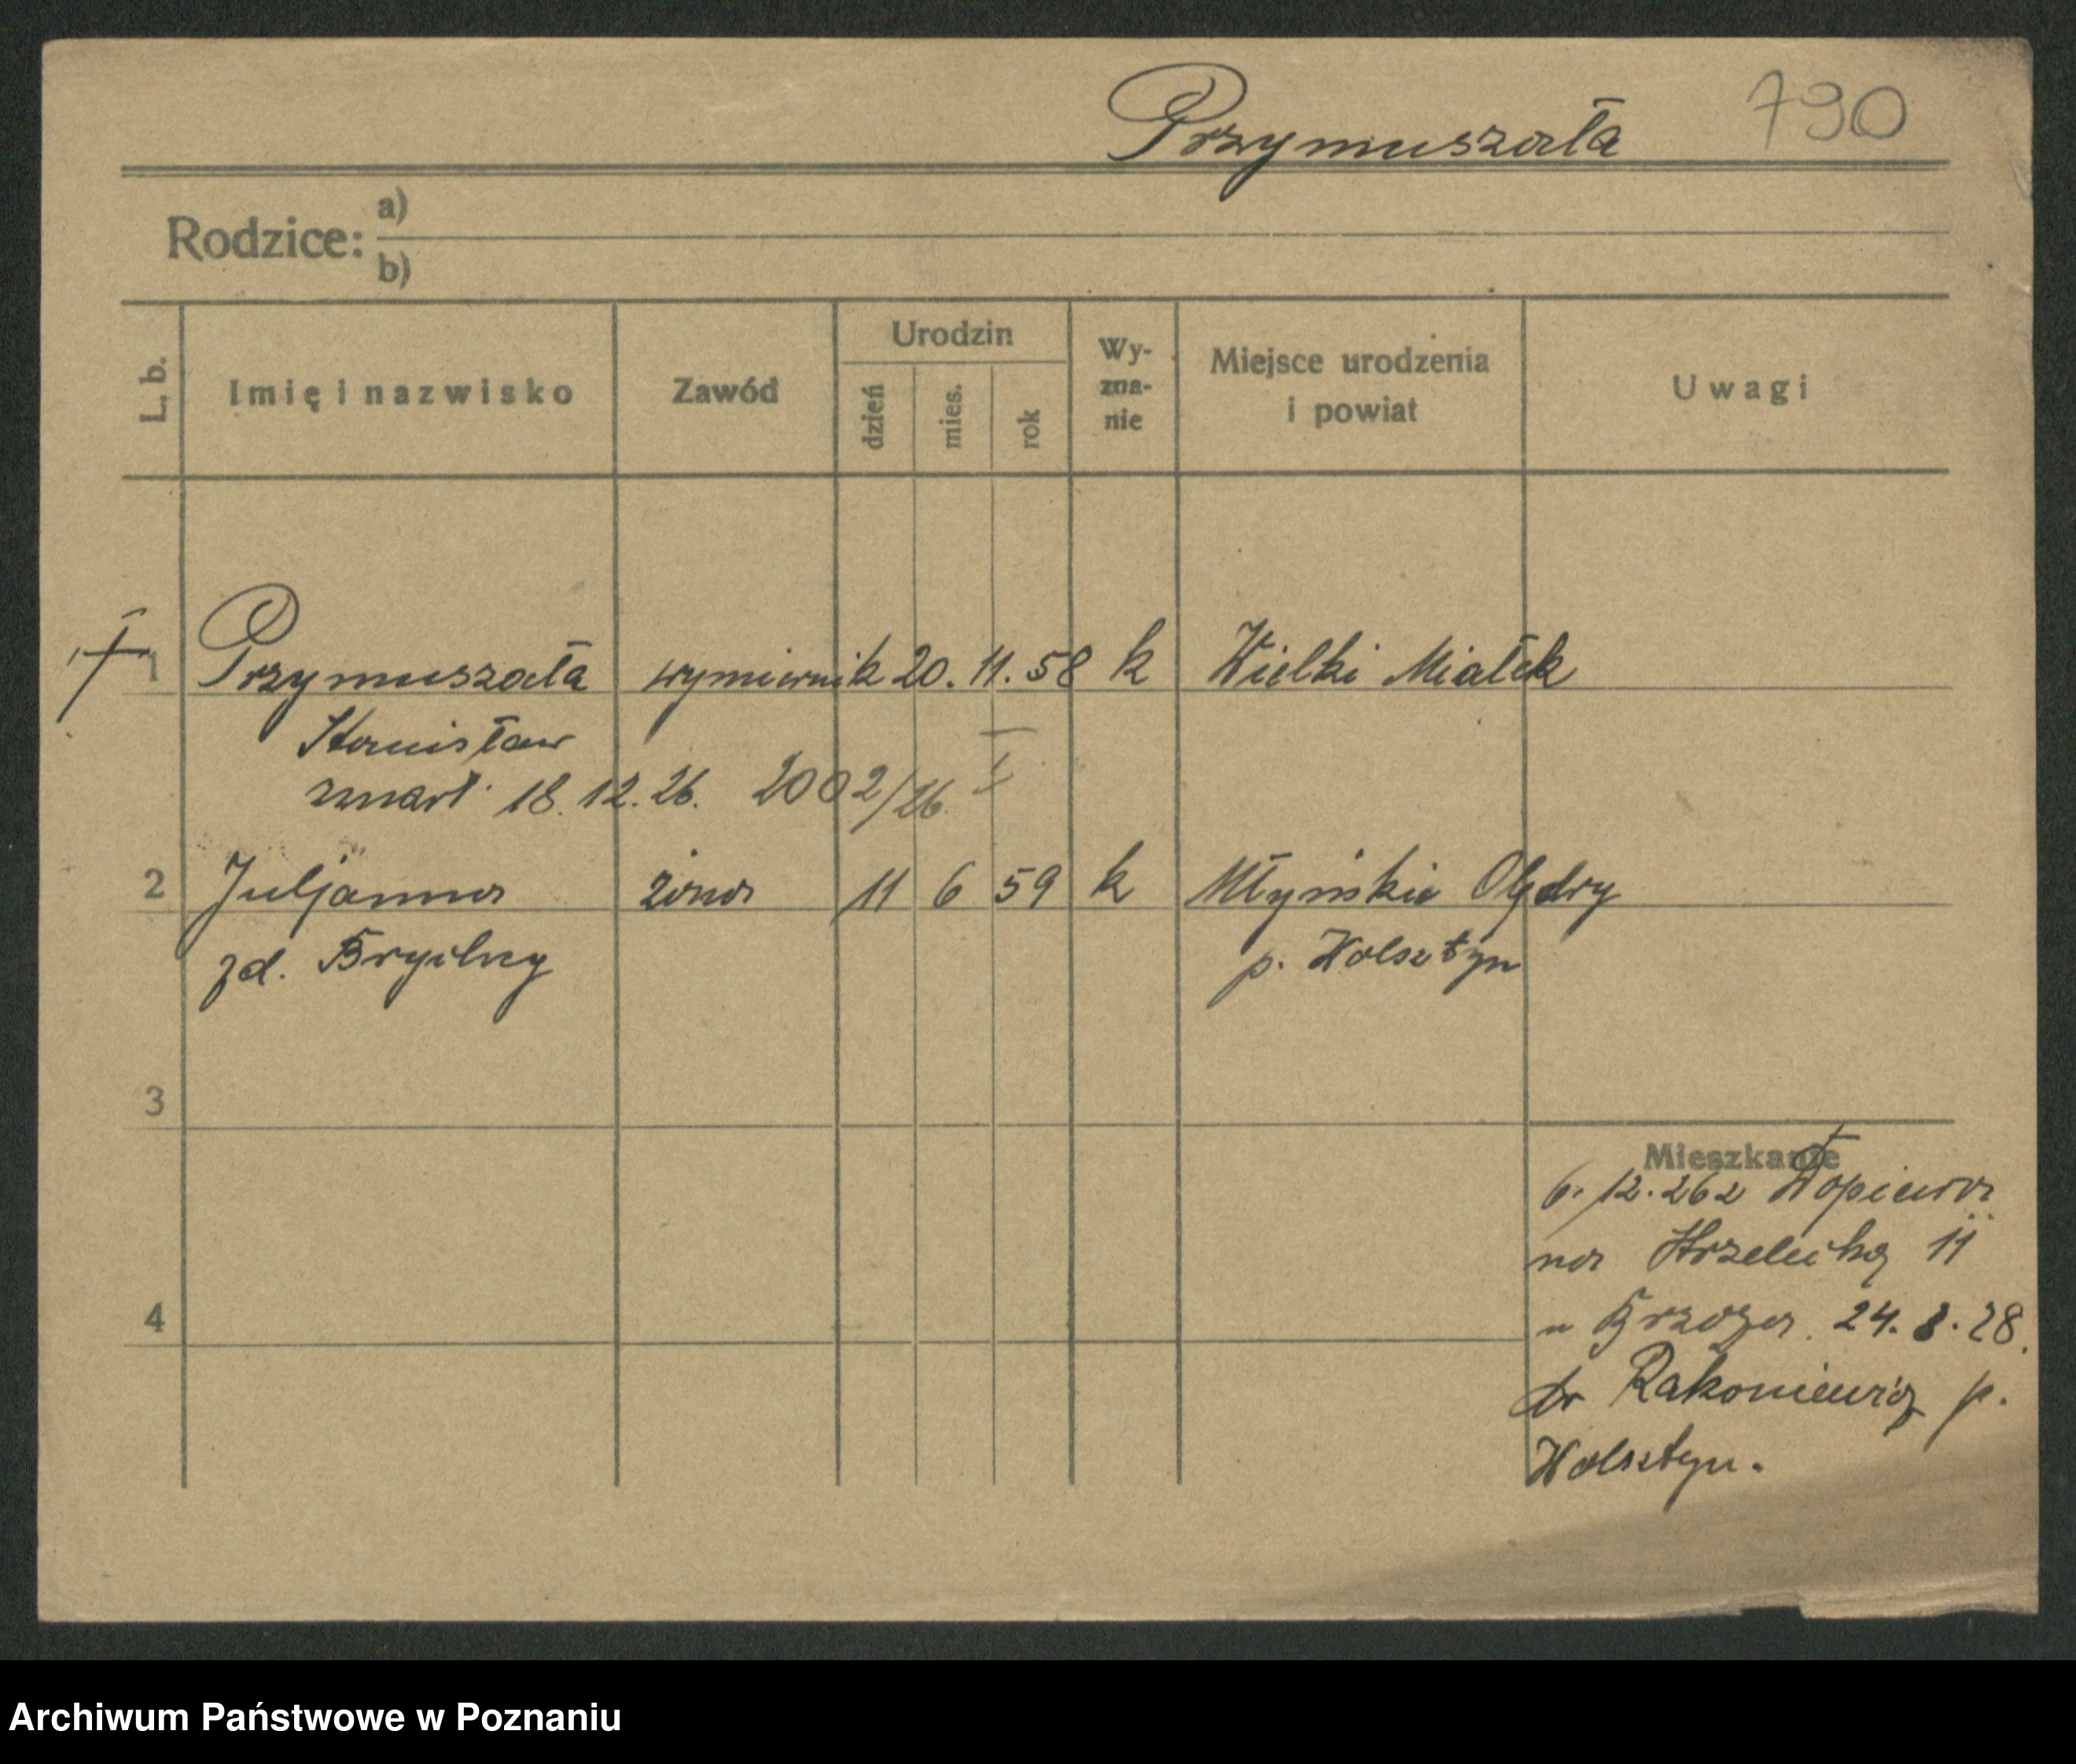 Przymuszała 790
Rodzice: a)
b)
L. b.
Imię i nazwisko
Zawód
Urodzin
dzień
mies.
rok
Wy-
zna-
nie
Miejsce urodzenia
i powiat
Uwagi
1 Przymuszała wymiernik 20. 11. 58 k Wielki Miałek
Stanisław
zmarł 18. 12. 26. 2002/26
2 Juljanna żona 11 6 59 k Młyńskie Olędry
zd. p. Wolsztyn
3
Mieszkanie
6. 12. 26 z Dopiewa
na Strzelecką 11
u Brzoza. 24. 8. 28.
do Rakoniewic p.
Wolsztyn.
4
Archiwum Państwowe w Poznaniu